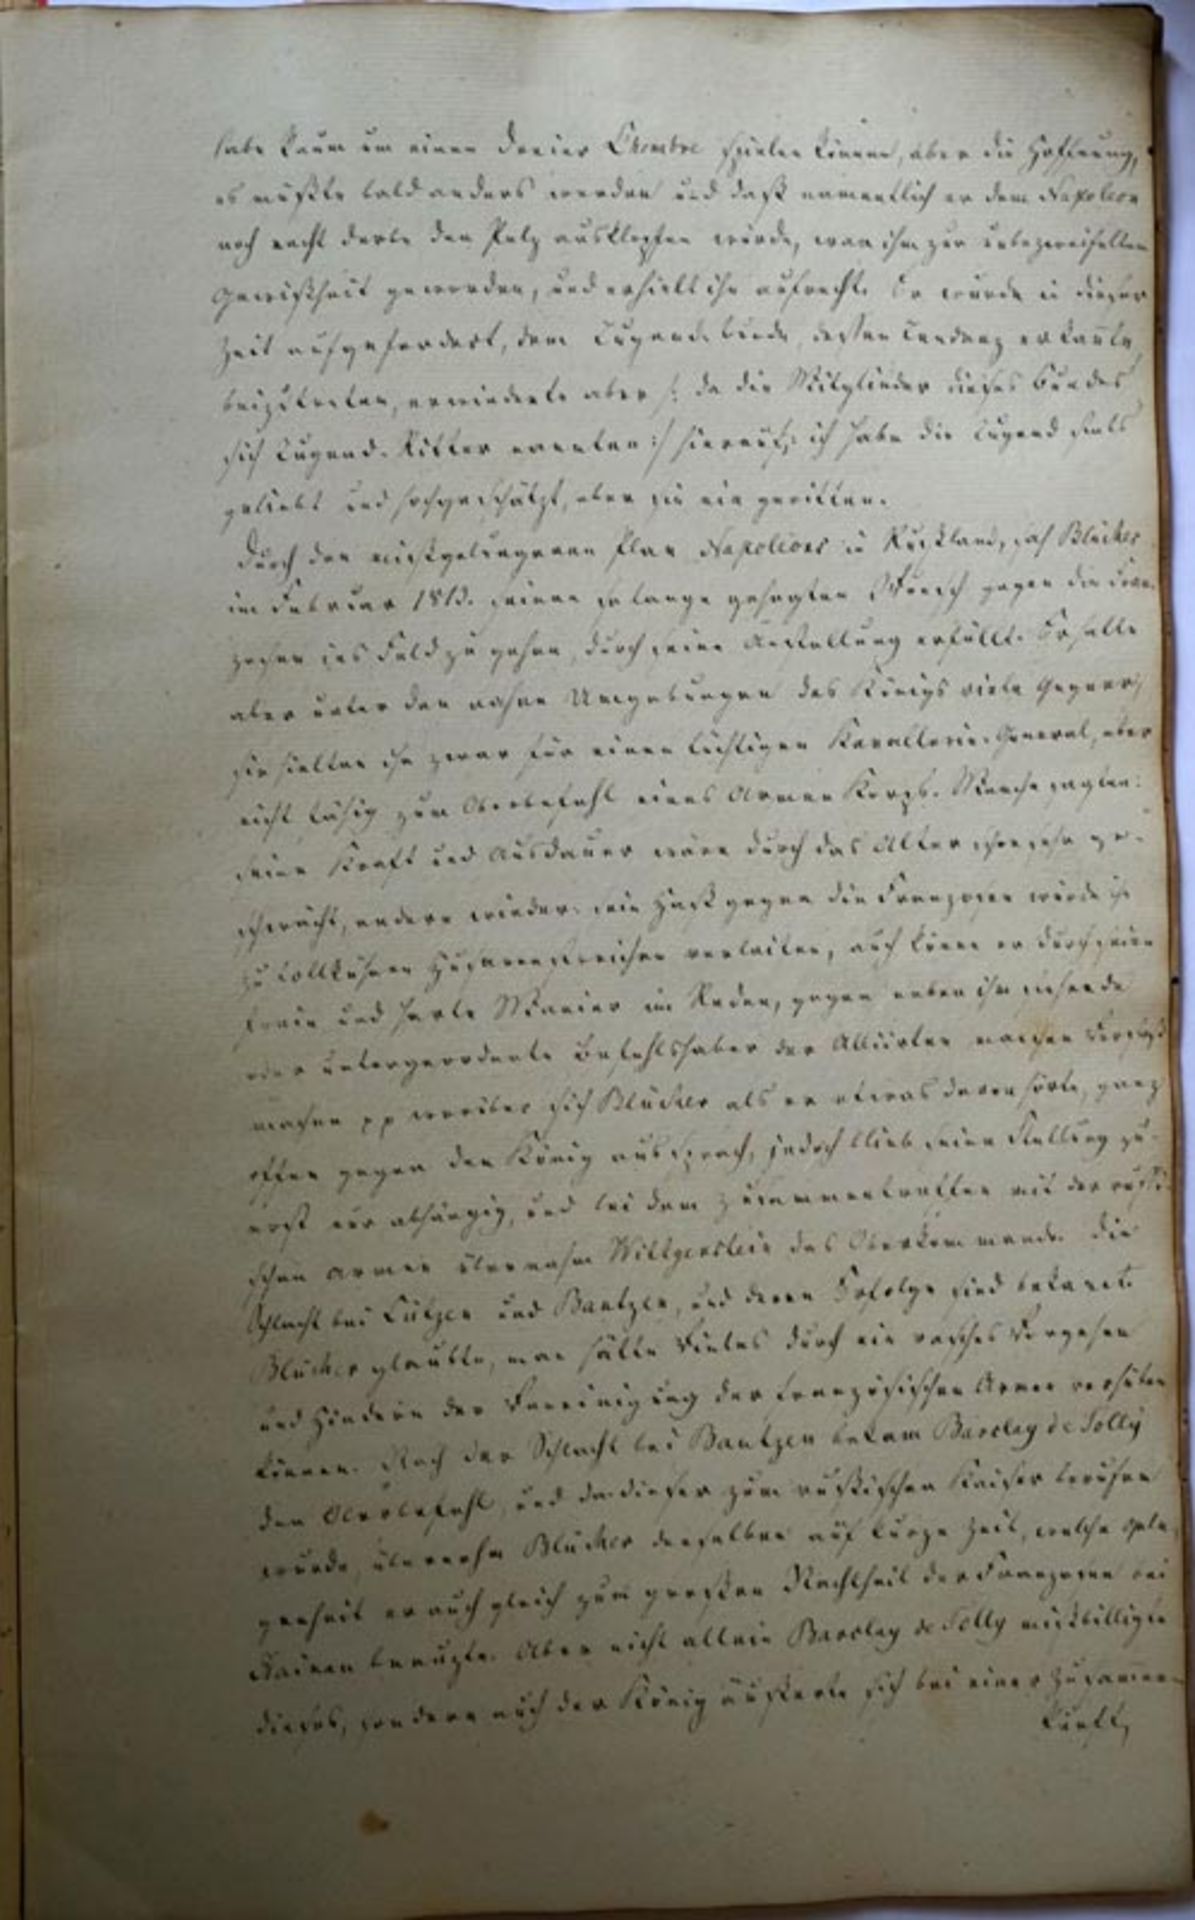 habe kaum um einen Dreier L'hombre spielen können, aber die Hoffnung,
es müßte bald anders werden und daß namentlich er dem Napoleon
noch recht derbe den Pelz ausklopfen würde, war ihm zur unbezweifelten
Gewißheit geworden, und erhielt ihn aufrecht. Er wurde in dieser
Zeit aufgefordert, dem Tugendbunde, dessen Tendenz er kannte,
beizutreten, erwiederte aber /: da die Mitglieder dieses Bundes
sich Tugend-Ritter nannten :/ hierauf: ich habe die Tugend stets
geliebt und hochgeschätzt, aber sie nie geritten.
Durch den mißgelungenen Plan Napoleons in Rußland, sah Blücher
im Februar 1813. seinen so lange gehegten Wunsch gegen die Fran-
zosen ins Feld zu gehen, durch seine Anstellung erfüllt. Er hatte
aber unter den nahen Umgebungen des Königs viele Gegner,
sie hielten ihn zwar für einen tüchtigen Kavallerie-General, aber
nicht fähig zum Oberbefehl eines Armee Korps. Manche sagten:
seine Kraft und Ausdauer wäre durch das Alter schon sehr ge-
schwächt, andere wieder: sein Haß gegen die Franzosen würde ihn
zu tollkühnen Husarenstreichen verleiten, auch könne er durch seine
freie und harte Manier im Reden, gegen neben ihm stehende
oder untergeordnete Befehlshaber der Alliirten manchen Verstoß
machen pp worüber sich Blücher als er etwas davon hörte, ganz
offen gegen den König aussprach, jedoch blieb seine Stellung zu-
erst nur abhängig, und bei dem Zusammentreffen mit der russi-
schen Armee übernahm Wittgenstein das Oberkommando. Die
Schlacht bei Lützen und Bautzen, und deren Erfolge sind bekannt.
Blücher glaubte, man hätte Vieles durch ein rasches Vorgehen
und Hindern der Vereinigung der französischen Armee verhüten
können. Nach der Schlacht bei Bautzen bekam Barclay de Tolly
den Oberbefehl, und da dieser zum rußischen Kaiser berufen
wurde, übernahm Blücher denselben auf kurze Zeit, welche Gele-
genheit er auch gleich zum großen Nachtheil der Franzosen bei
Hainau benuzte. Aber nicht allein Barclay de Tolly mißbilligte
dieses, sondern auch der König äußerte sich bei einer Zusammen-
kunft,